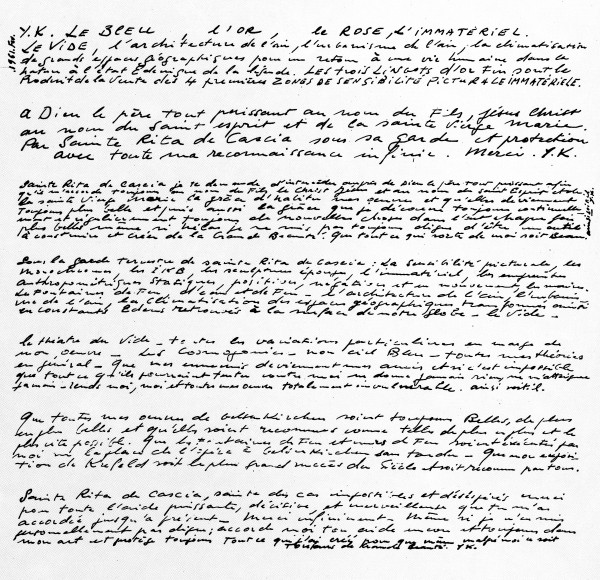 Y.K. LE BLEU l'OR, le ROSE, L'IMMATÉRIEL.
LE VIDE, l'architecture de l'air, l'urbanisme de l'air, la climatisation
de grands espaces géographiques pour un retour à une vie humaine dans la
nature à l'état Edenique de la légende. LES TROIS LINGOTS d'OR Fin sont le
Produit de la Vente des 4 premières ZONES DE SENSIBILITÉ PICTURALE IMMATÉRIELLE.
1961. Fev.
A Dieu le père tout puissant au nom du Fils, Jésus Christ
au nom du Saint esprit et de la sainte Vierge Marie.
Par Sainte Rita de Cascia sous sa garde et protection
avec toute ma reconnaissance infinie. Merci. Y.K.
Sainte Rita de Cascia je te demande d'intercéder auprès de Dieu le père tout puissant afin
qu'il m'accorde toujours au nom du Fils le Christ Jésus et au nom du Saint Esprit et de
la sainte Vierge Marie la grâce d'habiter mes oeuvres et qu'elles deviennent
toujours plus belles et puis aussi la grâce que je découvre toujours continuellement
et régulièrement toujours de nouvelles choses dans l'art chaque fois
plus belles même si hélas je ne suis pas toujours digne d'être un outil
à construire et créer de la Grande Beauté. Que tout ce qui sorte de moi soit Beau.
ainsi soit-il
Y.K.
Sous la garde terrestre de Sainte Rita de Cascia : la sensibilité picturale, les
monochromes, les IKB, les sculptures éponges, l'immatériel, les empreintes
anthropométriques statiques, positives, négatives et en mouvement, les suaires.
Les Fontaines de Feu, d'eau et de Feu - l'architecture de l'air, l'urbanis-
me de l'air, la climatisation des espaces géographiques transformés ainsi
en constants Edens retrouvés à la surface de notre Globe - le Vide -
Le théatre du Vide - toutes les variations particulières en marge de
mon oeuvre - Les Cosmogonies - mon ciel Bleu - toutes mes théories
en général - Que mes ennemis deviennent mes amis et si c'est impossible
que tout ce qu'ils pourraient tenter contre moi ne donne jamais rien, ni ne m'atteigne
jamais - rends moi, moi et toutes mes oeuvres totalement invulnérable. ainsi soit-il.
Que toutes mes oeuvres de Gelsenkirchen soient toujours Belles, de plus
en plus belles et qu'elles soient reconnues comme telles de plus en plus et le
plus vite possible. Que les Fontaines de Feu et murs de Feu soient éxécutés par
moi sur la place de l'Opéra à Gelsenkirchen sans tarder - Que mon exposi-
tion de Krefeld soit le plus grand succès du Siècle et soit reconnu par tous.
Sainte Rita de Cascia, sainte des cas impossibles et désespérés merci
pour toute l'aide puissante, décisive, et merveilleuse que tu m'as
accordée jusqu'à présent - Merci infiniment. Même si je n'en suis
personnellement pas digne : accorde moi ton aide encore et toujours dans
mon art et protège toujours tout ce que j'ai créé pour que même malgré moi ce soit
Toujours de Grande Beauté. Y.K.